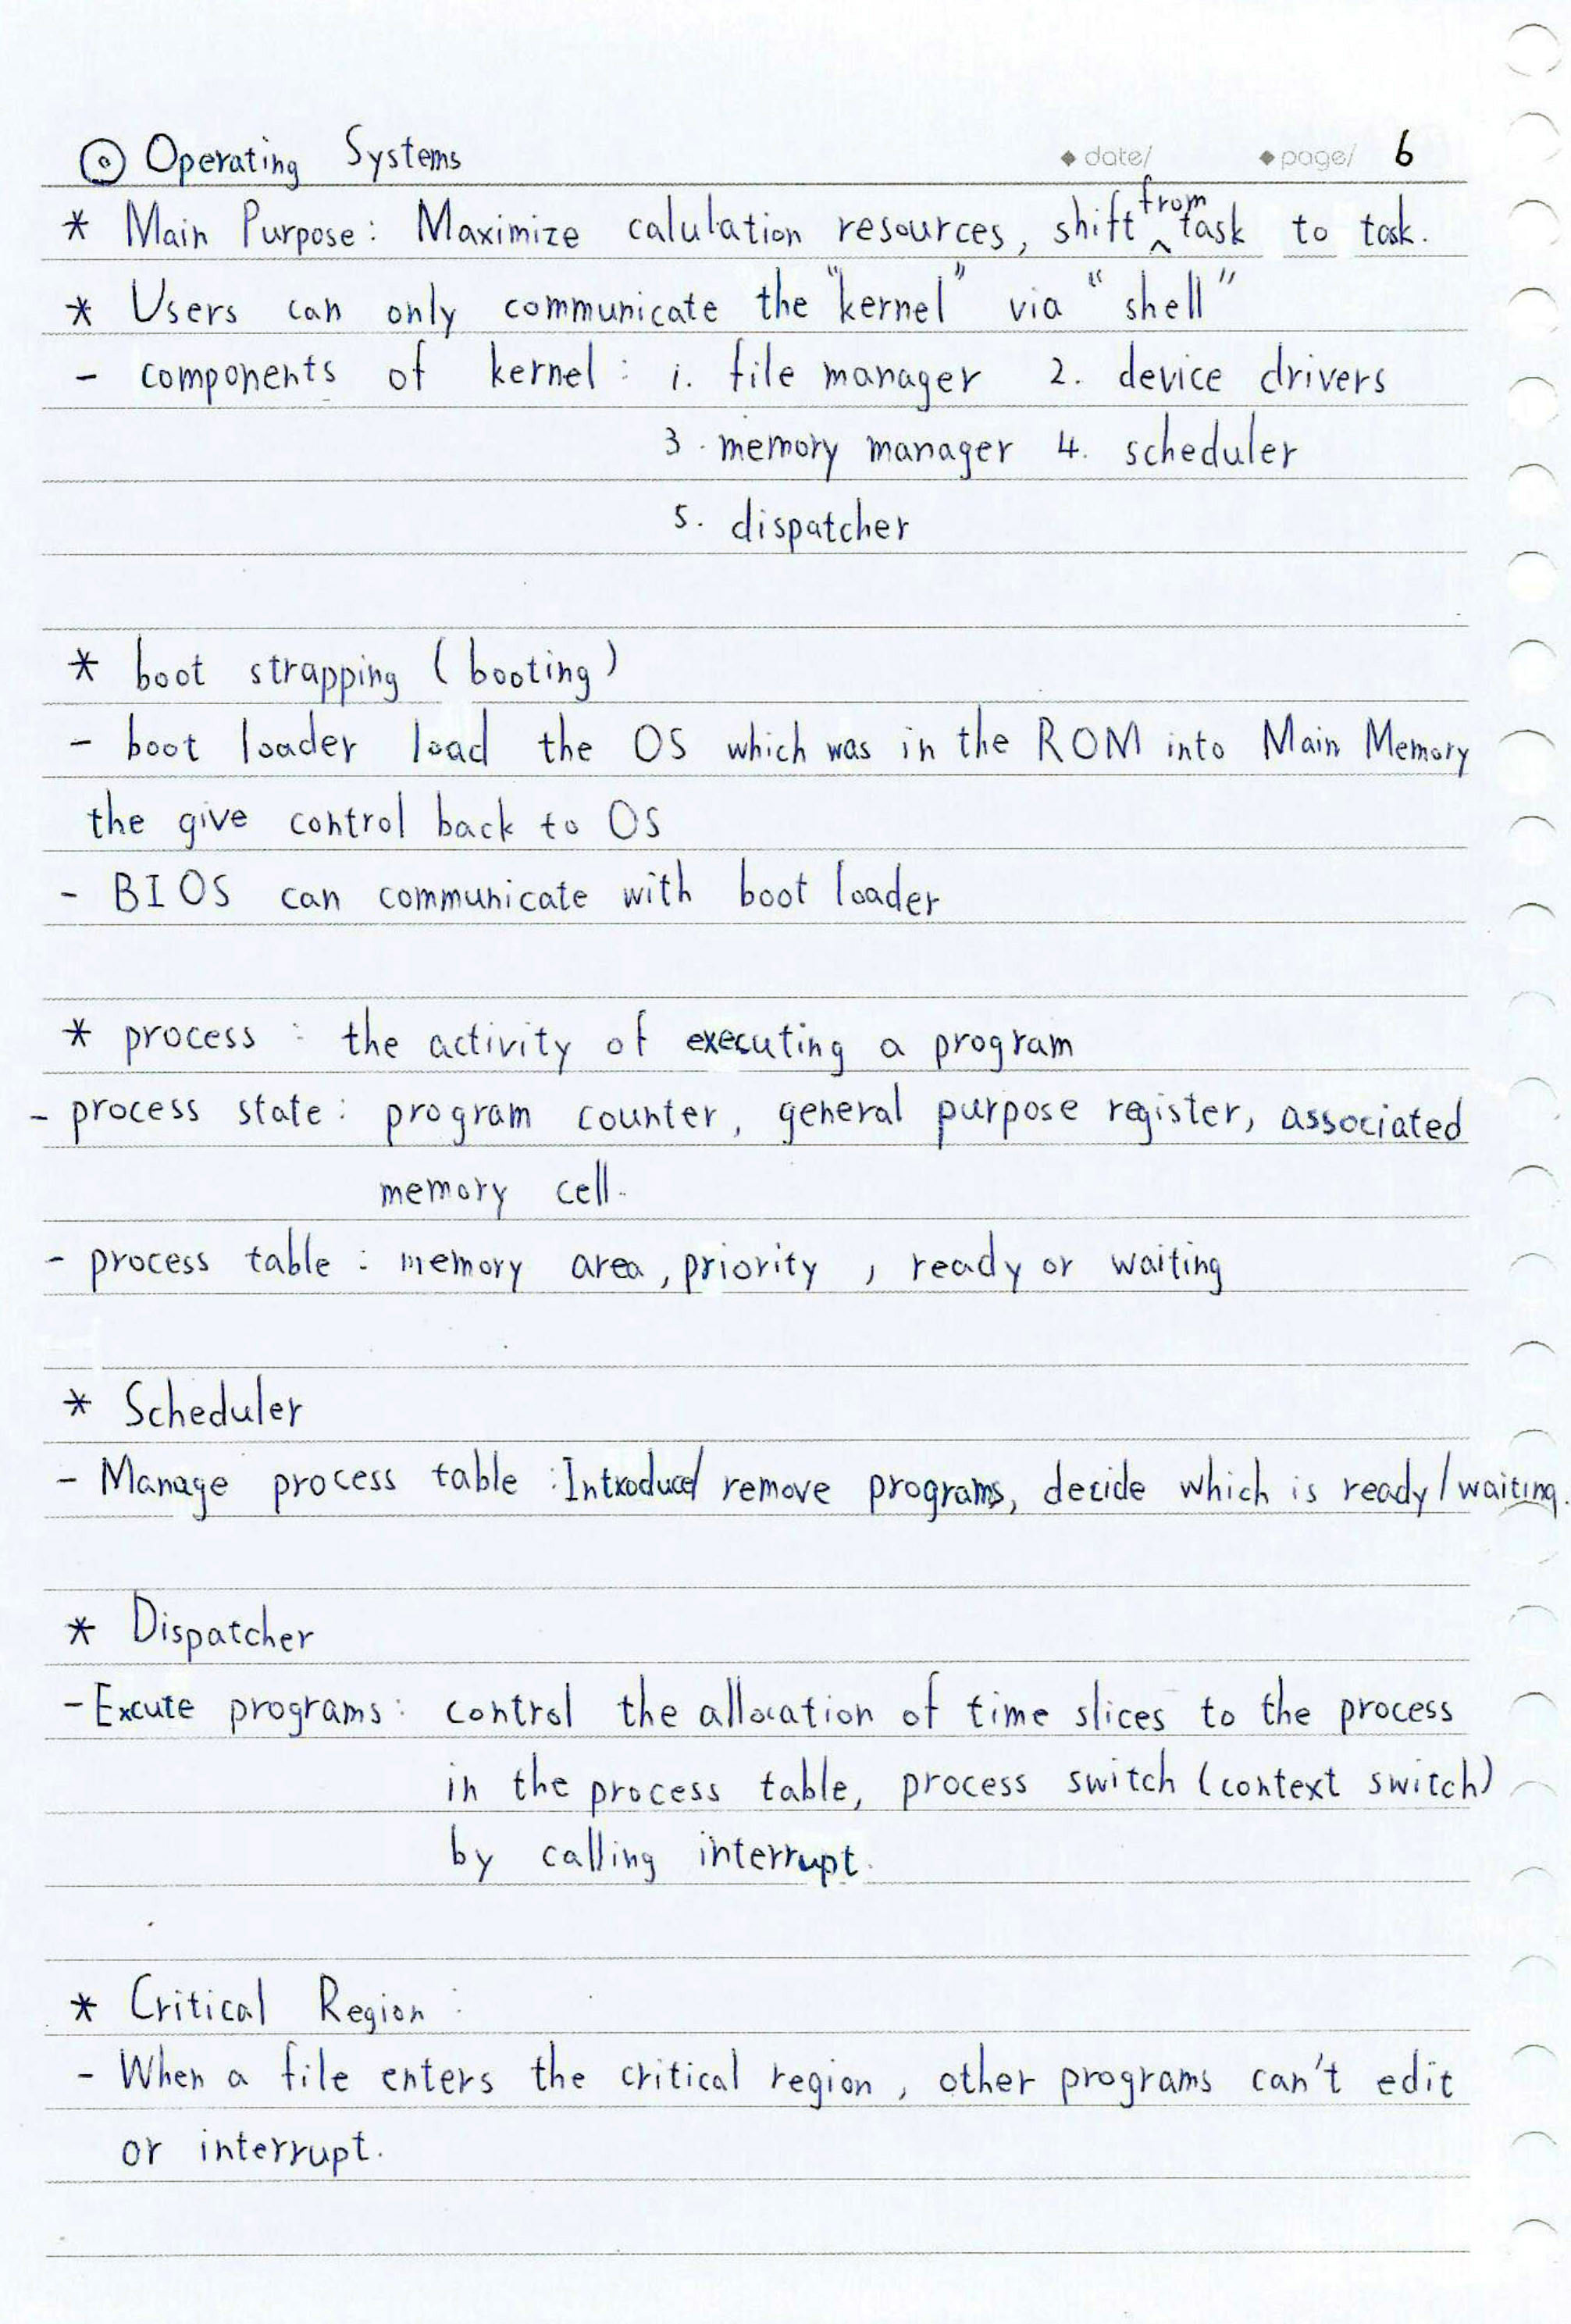 ⊙ Operating Systems ◆ date/ ◆ page/ 6
* Main Purpose: Maximize calulation resources, shift from task to task.
* Users can only communicate the "kernel" via "shell"
- components of kernel: 1. file manager 2. device drivers
3. memory manager 4. scheduler
5. dispatcher
* boot strapping (booting)
- boot loader load the OS which was in the ROM into Main Memory
the give control back to OS
- BIOS can communicate with boot loader
* process : the activity of executing a program
- process state: program counter, general purpose register, associated
memory cell.
- process table : memory area, priority , ready or waiting
* Scheduler
- Manage process table : Introduce/ remove programs, decide which is ready/waiting.
* Dispatcher
- Excute programs: control the allocation of time slices to the process
in the process table, process switch (context switch)
by calling interrupt.
* Critical Region:
- When a file enters the critical region, other programs can't edit
or interrupt.